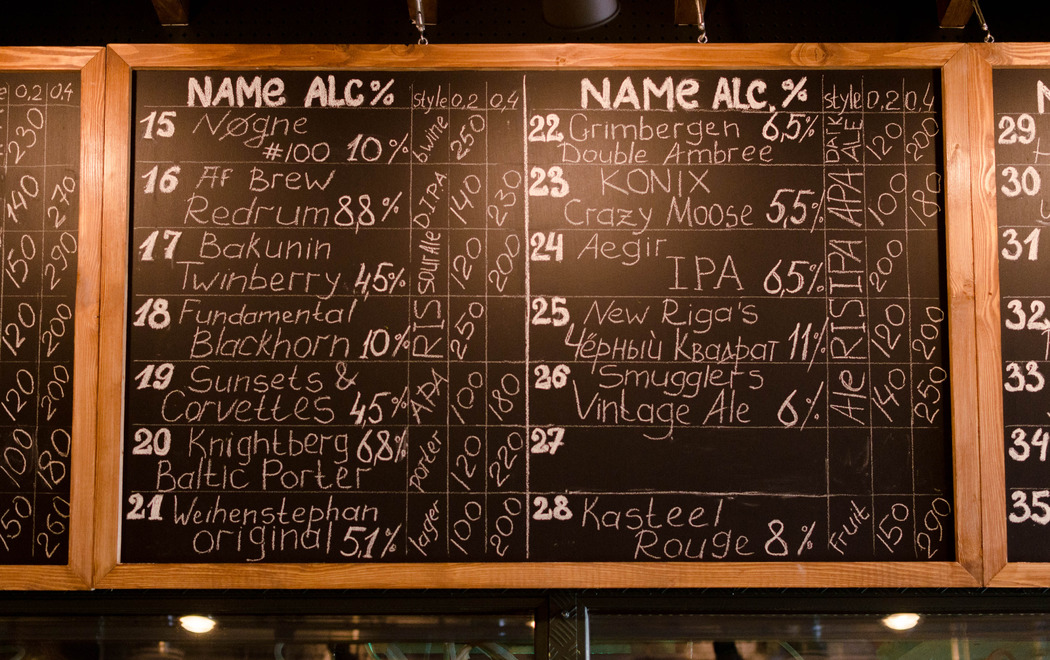 e 0,2 0,4
230
140 270
150 290
120 200
120 200
100 180
150 260
NAME ALC% style 0,2 0,4
15 Nøgne
#100 10% b.wine 250
16 Af Brew
Redrum 8,8% D.IPA 140 230
17 Bakunin
Twinberry 4,5% Sour Ale 120 200
18 Fundamental
Blackhorn 10% RIS 250
19 Sunsets &
Corvettes 4,5% APA 100 180
20 Knightberg 6,8%
Baltic Porter porter 120 220
21 Weihenstephan
original 5,1% lager 100 200
NAME ALC. % style 0,2 0,4
22 Grimbergen 6,5%
Double Ambree DARK ALE 120 200
23 KONIX
Crazy Moose 5,5% APA 100 180
24 Aegir
IPA 6,5% IPA 200
25 New Riga's
Чёрный Квадрат 11% RIS 120 200
26 Smugglers
Vintage Ale 6% Ale 140 250
27
28 Kasteel
Rouge 8% Fruit 150 290
N
29
30
31
32
33
34
35